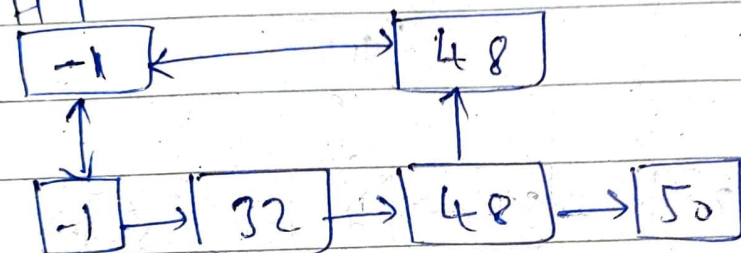 -1 48
-1 32 48 50